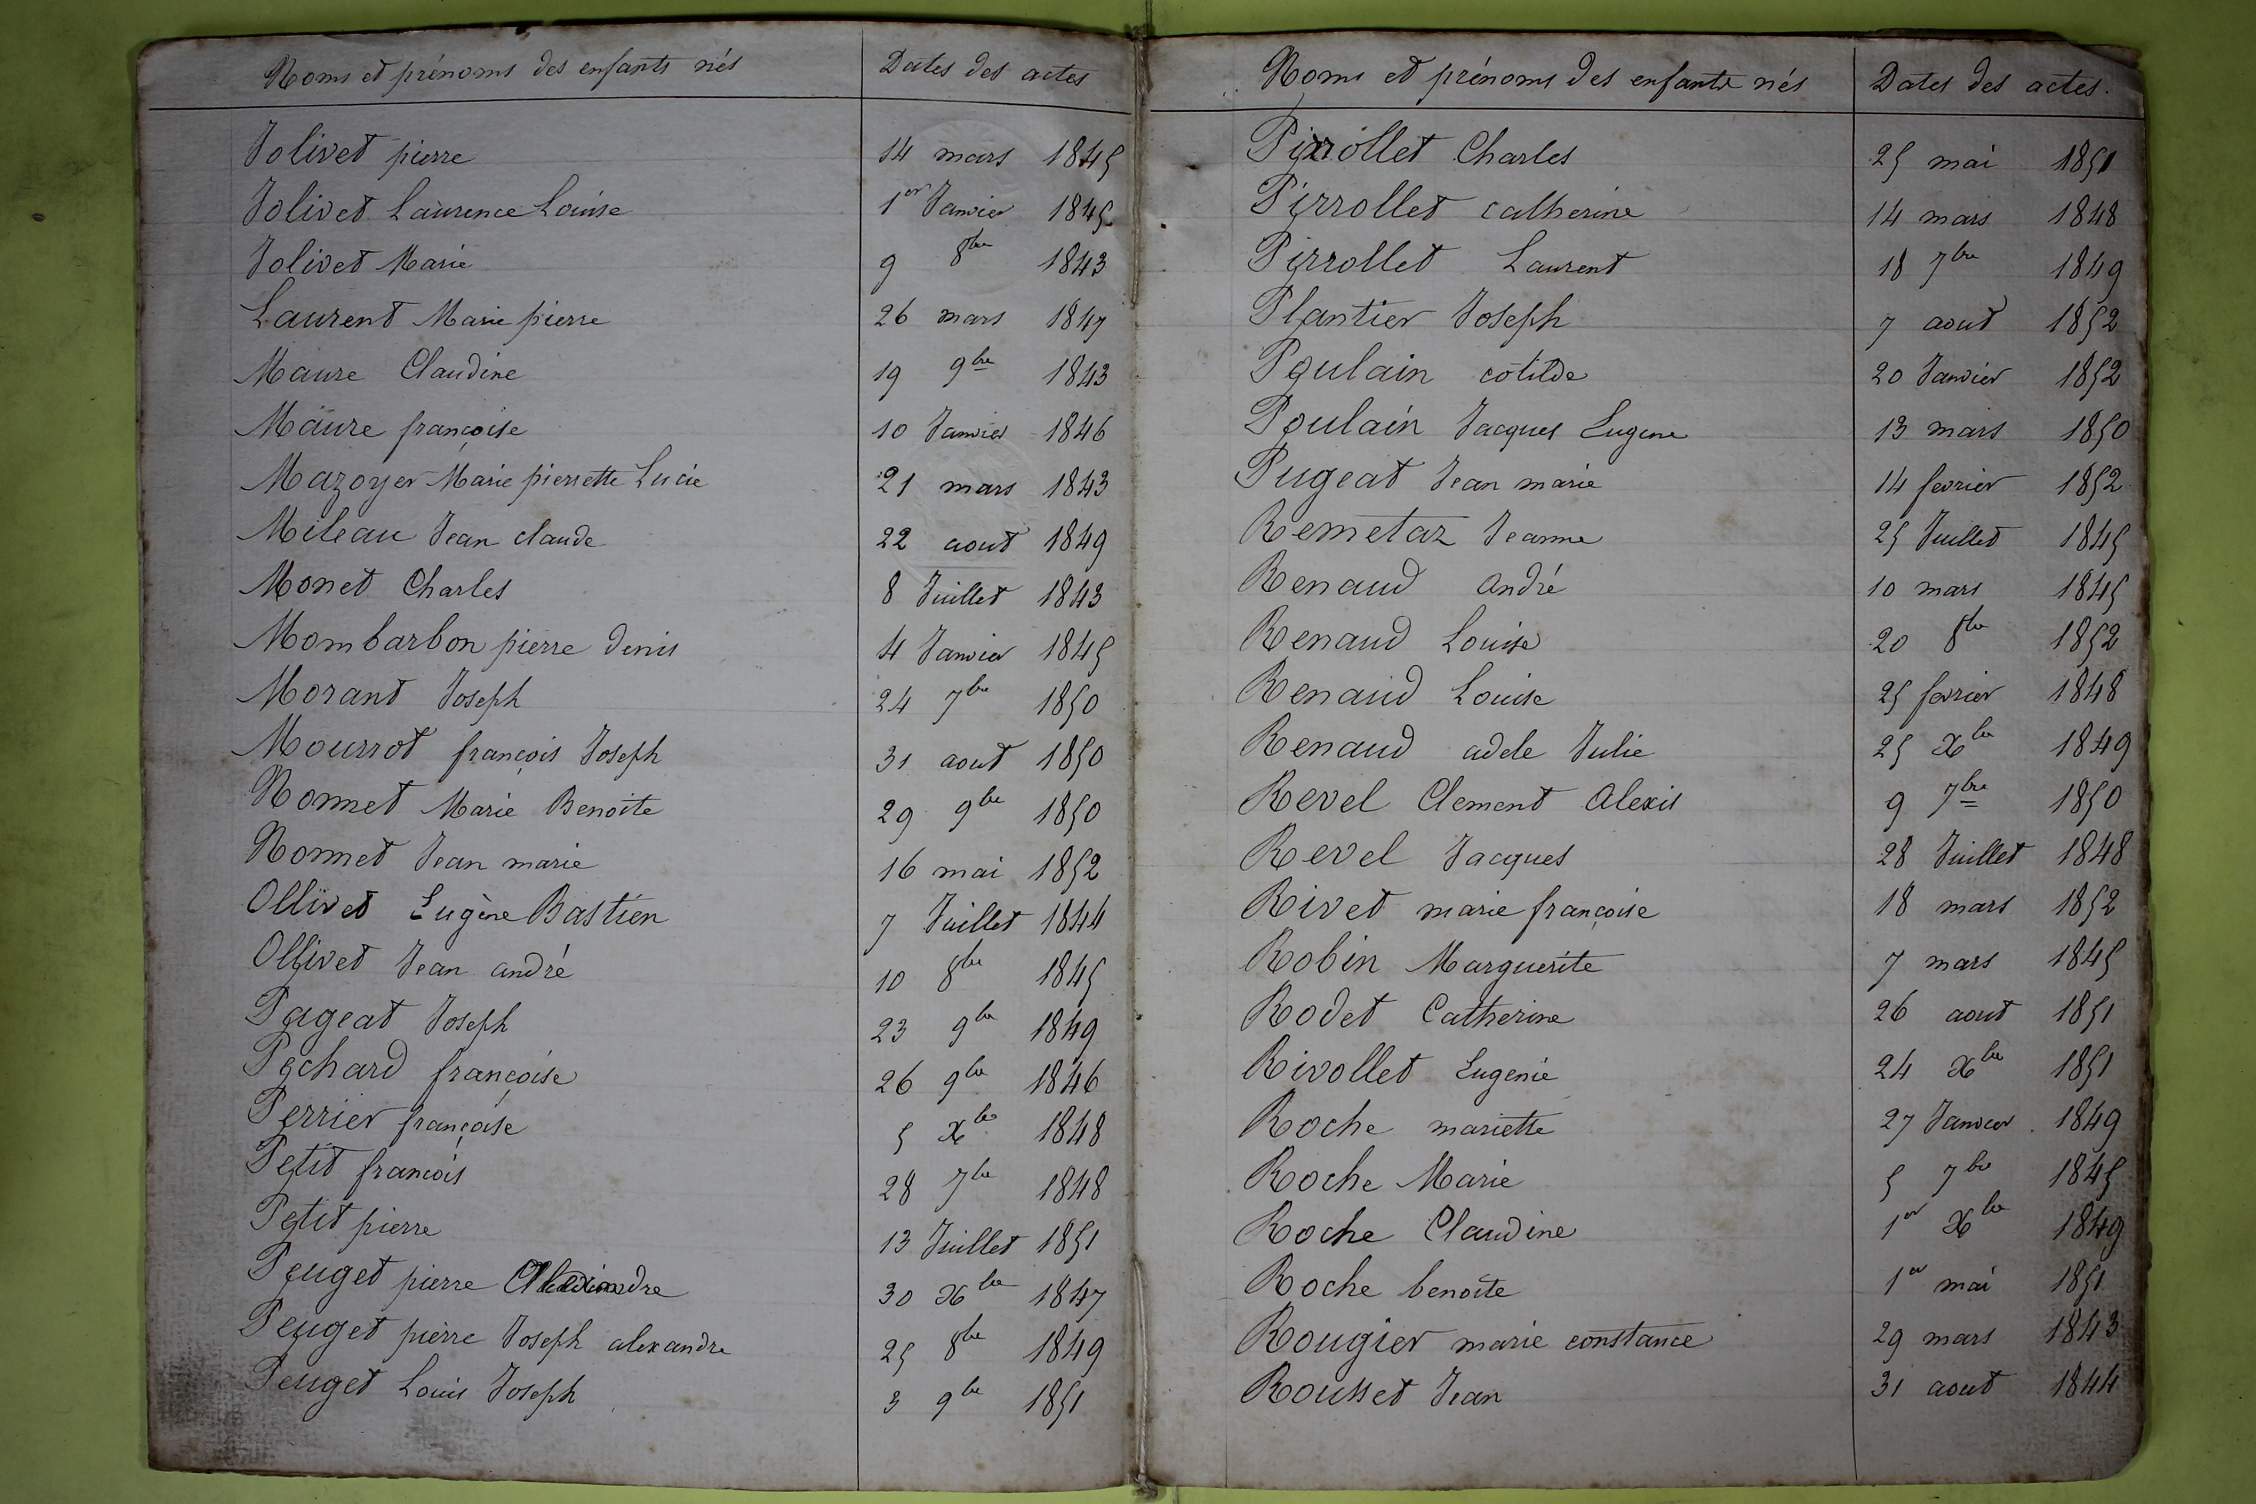 Noms et prénoms des enfants nés Dates des actes
Jolivet pierre 14 mars 1845
Jolivet Laurence Louise 1er Janvier 1845
Jolivet Marie 9 8bre 1843
Laurent Marie pierre 26 mars 1847
Maure Claudine 19 9bre 1843
Maure françoise 10 Janvier 1846
Mazoyer Marie pierrette Lucie 21 mars 1843
Mileau Jean claude 22 aout 1849
Monet Charles 8 Juillet 1843
Mombarbon pierre denis 4 Janvier 1845
Morant Joseph 24 7bre 1850
Mourrot françois Joseph 31 aout 1850
Nonnet Marie Benoite 29 9bre 1850
Nonnet Jean marie 16 mai 1852
Ollivet Eugène Bastien 7 Juillet 1844
Ollivet Jean andré 10 8bre 1845
Pageat Joseph 23 9bre 1849
Pechard françoise 26 9bre 1846
Perrier françoise 5 Xbre 1848
Petit francois 28 7bre 1848
Petit pierre 13 Juillet 1851
Peuget pierre Alexandre 30 Xbre 1847
Peuget pierre Joseph alexandre 25 8bre 1849
Peuget Louis Joseph 3 9bre 1851
Noms et prénoms des enfants nés Dates des actes.
Pirrollet Charles 25 mai 1851
Pirrollet catherine 14 mars 1848
Pirrollet Laurent 18 7bre 1849
Plantier Joseph 7 aout 1852
Poulain cotilde 20 Janvier 1852
Poulain Jacques Eugene 13 mars 1850
Pugeat Jean marie 14 fevrier 1852
Remetaz Jeanne 25 Juillet 1845
Renaud andré 10 mars 1845
Renaud Louise 20 8bre 1852
Renaud Louise 25 fevrier 1848
Renaud adele Julie 25 Xbre 1849
Revel Clement Alexis 9 7bre 1850
Revel Jacques 28 Juillet 1848
Rivet marie françoise 18 mars 1852
Robin Marguerite 7 mars 1845
Rodet Catherine 26 aout 1851
Rivollet Eugenie 24 Xbre 1851
Roche mariette 27 Janvier 1849
Roche Marie 5 7bre 1845
Roche Claudine 1er Xbre 1849
Roche benoite 1er mai 1851
Rougier marie constance 29 mars 1843
Rousset Jean 31 aout 1844